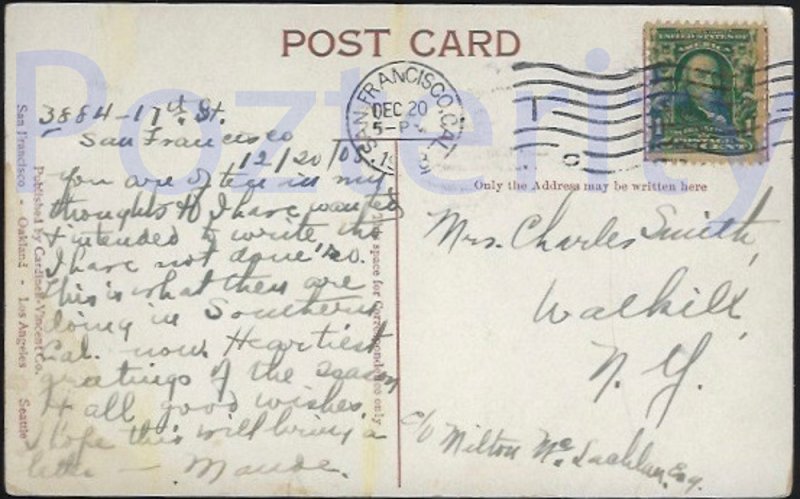 POST CARD
SAN FRANCISCO, CAL.
DEC 20
5-P
UNITED STATES OF
AMERICA
CENT
3884-17th St.
San Francisco
12/20/08.
You are often in my
thoughts & I have wanted
& intended to write tho
I have not done so.
This is what they are
doing in Southern
Cal. now. Heartiest
greetings of the season
& all good wishes.
I hope this will bring a
letter — Maude.
Only the Address may be written here
Mrs. Charles Smith,
Wallkill,
N. Y.
c/o Milton McLachlan, Esq.
space for Correspondence only
Published by Cardinell-Vincent Co.
San Francisco - Oakland - Los Angeles - Seattle